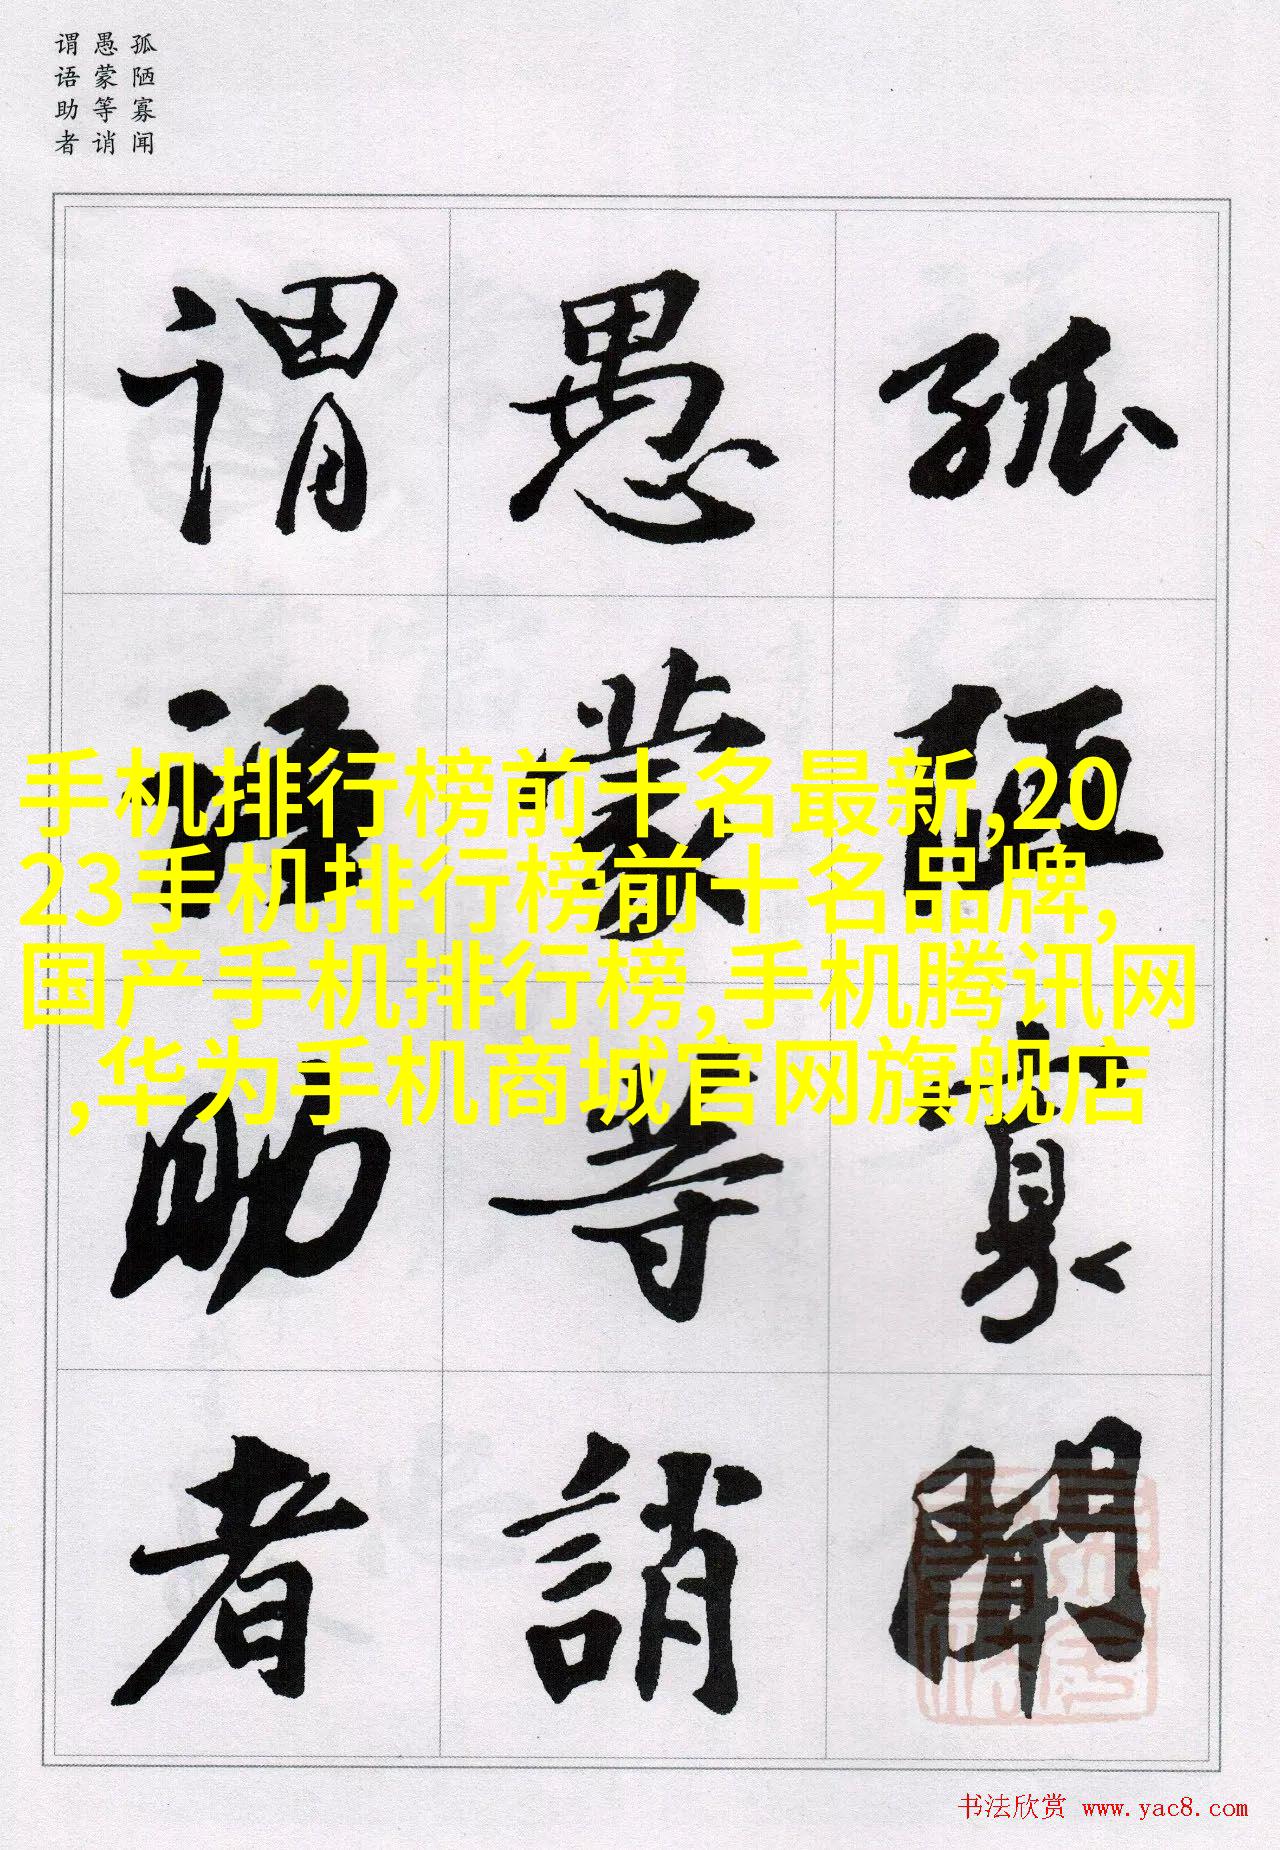 孤陋寡闻
愚蒙等诮
谓语助者
孤陋寡聞
愚蒙等誚
謂語助者
手机排行榜前十名最新,20
23手机排行榜前十名品牌,
国产手机排行榜,手机腾讯网
,华为手机商城官网旗舰店
书法欣赏 www.yac8.com